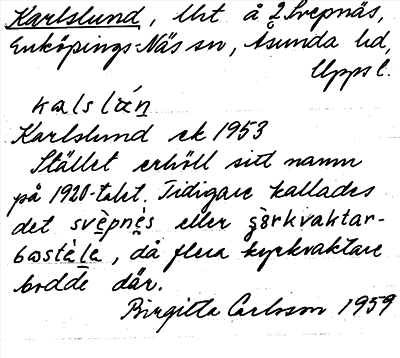 Karlslund, lht å 2 Svepnäs,
Enköpings-Näs sn, Åsunda hd,
Upps l.
kalslán
Karlslund ek 1953
Stället erhöll sitt namn
på 1920-talet. Tidigare kallades
det svèpnès eller
bostèle, då flera kyrkvaktare
bodde där.
Birgitta Carlsson 1959